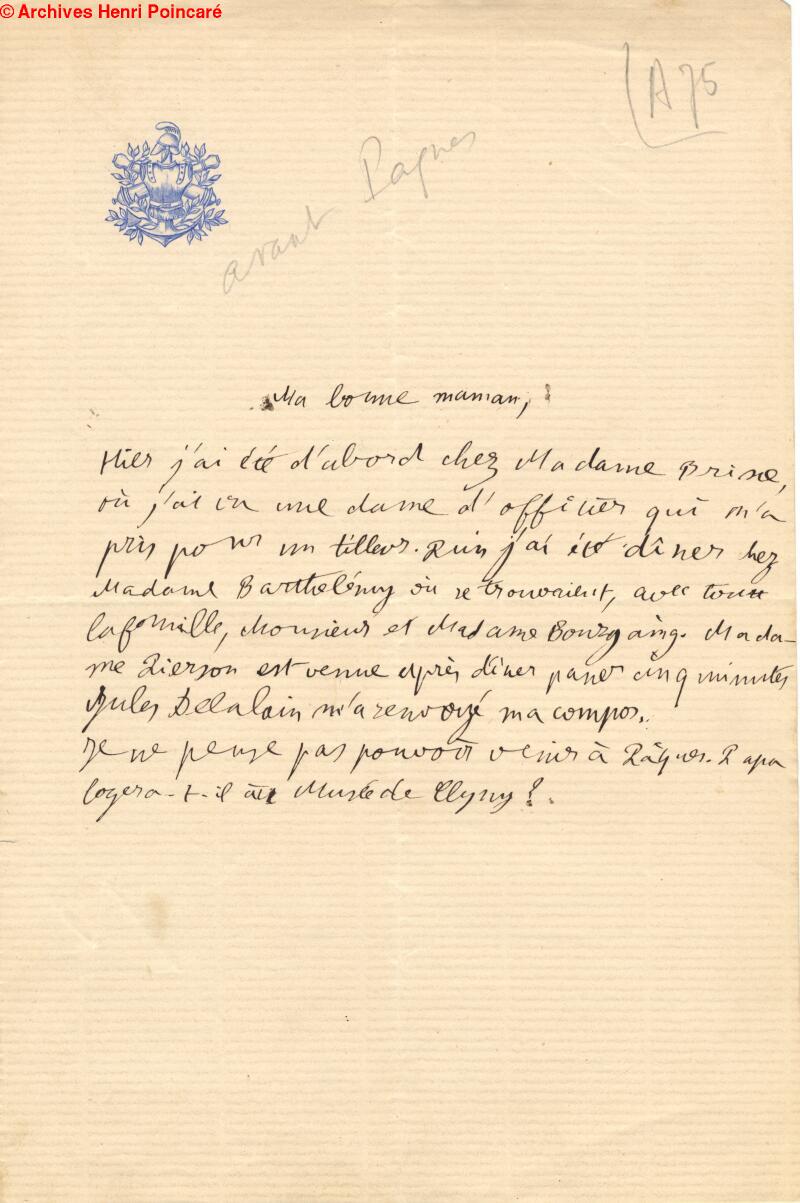 © Archives Henri Poincaré
A 75
avant Pâques
Ma bonne maman,
Hier j'ai été d'abord chez Madame
où j'ai vu une dame d'officier qui m'a
pris pour un tilleur. Puis j'ai été dîner chez
Madame Barthélémy où se trouvaient, avec toute
la famille, Monsieur et Madame Bourgoing. Mada-
me Pierson est venue après dîner passer cinq minutes
Jules Delalain m'a renvoyé ma compos.
Je ne pense pas pouvoir venir à Pâques. Papa
logera-t-il au Musée de Cluny?